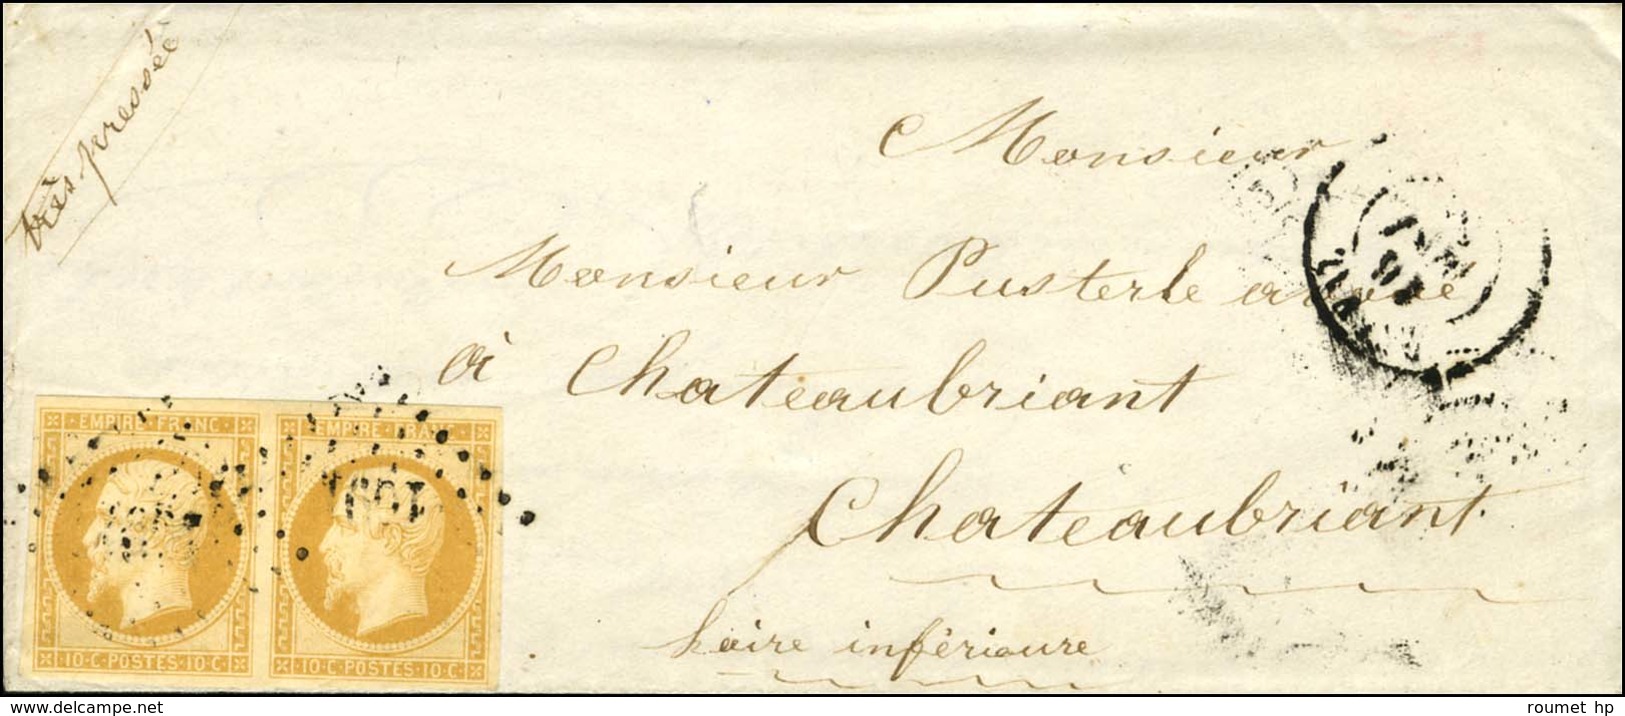 très pressée
Monsieur
Monsieur Pusterle avoué
à Chateaubriant
Chateaubriant.
Loire inférieure
EMPIRE FRANC EMPIRE FRANC
10·C·POSTES·10·C· 10·C·POSTES·10·C·
www.delcampe.net
roumet hp